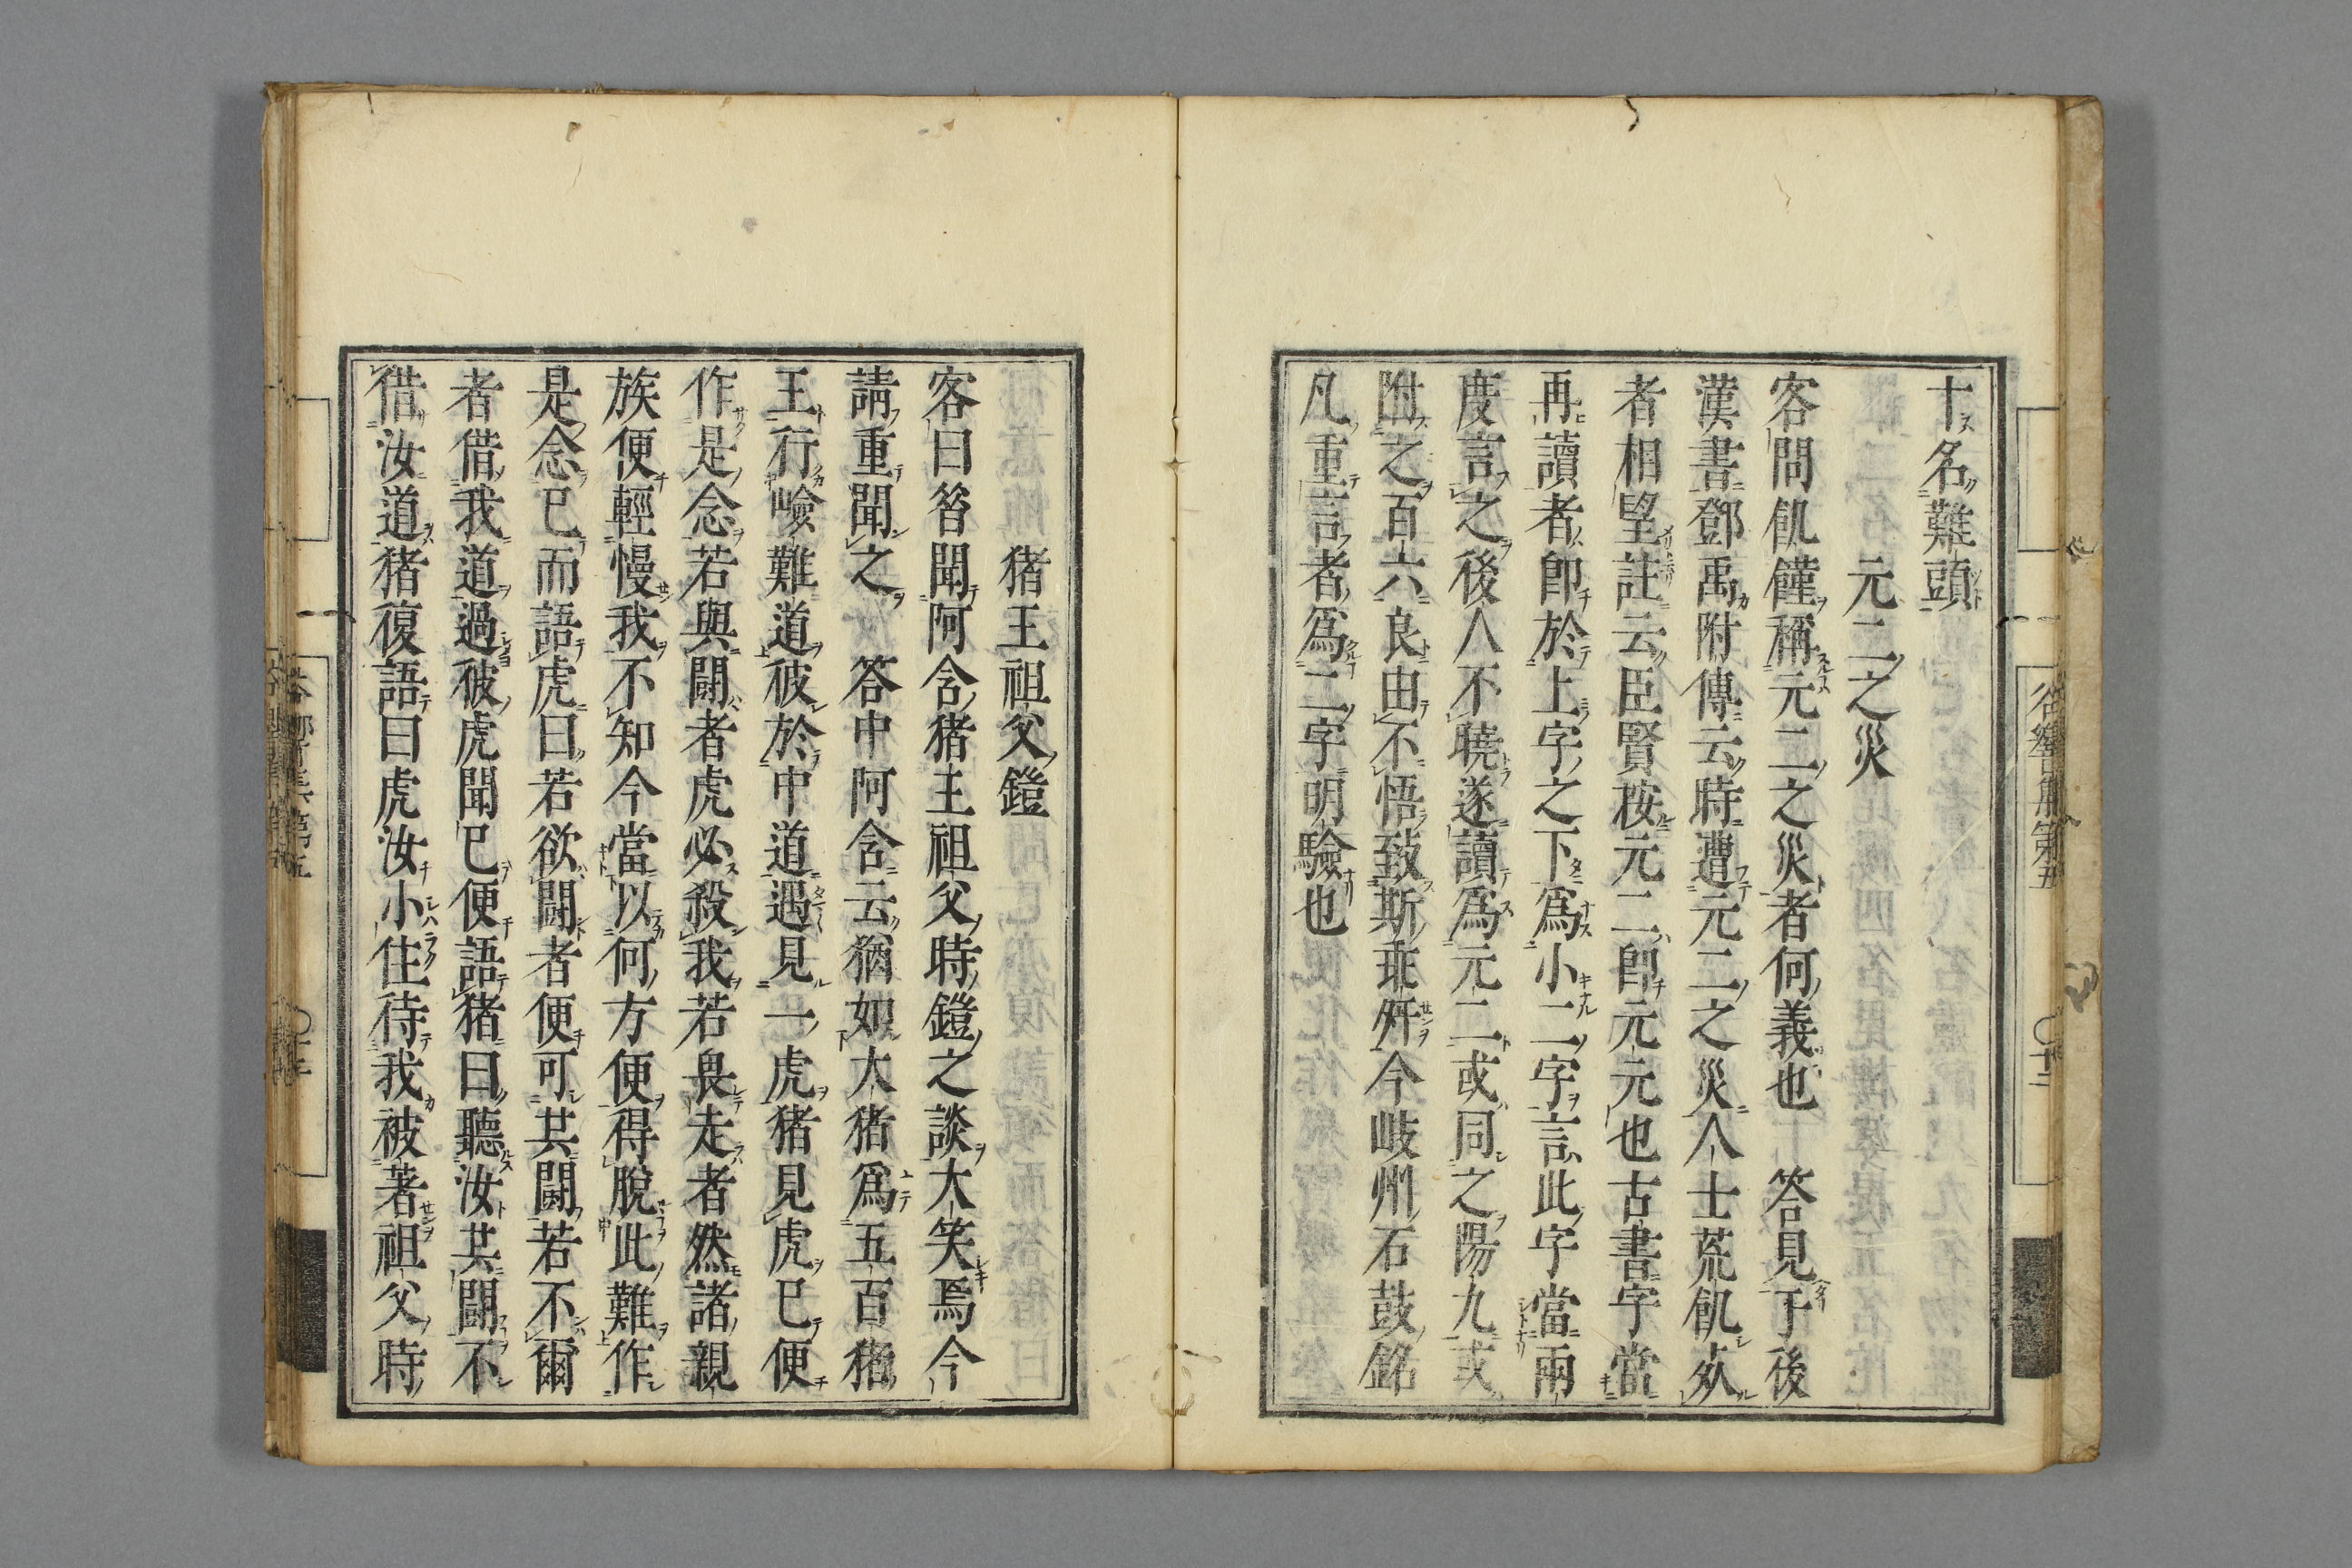 十名難頭
元二之災
客問飢饉稱元二之災者何義也　答見于後
漢書鄧禹附傳云時遭元二之災人士荒飢死
者相望註云臣賢桉元二即元元也古書字當
再讀者即於上字之下爲小二字言此字當兩
度言之後人不曉遂讀爲元二或同之陽九或
附之百六良由不悟致斯乖舛今岐州石鼓銘
凡重言者爲二字明驗也
猪王祖父鎧
客曰昝聞阿含猪王祖父時鎧之談大笑焉今
請重聞之　答中阿含云猶如大猪爲五百猪
王行嶮難道彼於中道遇見一虎猪見虎已便
作是念若與鬪者虎必殺我若畏走者然諸親
族便輕慢我不知今當以何方便得脫此難作
是念已而語虎曰若欲鬪者便可共鬪若不爾
者借我道過彼虎聞已便語猪曰聽汝共鬪不
借汝道猪復語曰虎汝小住待我被著祖父時